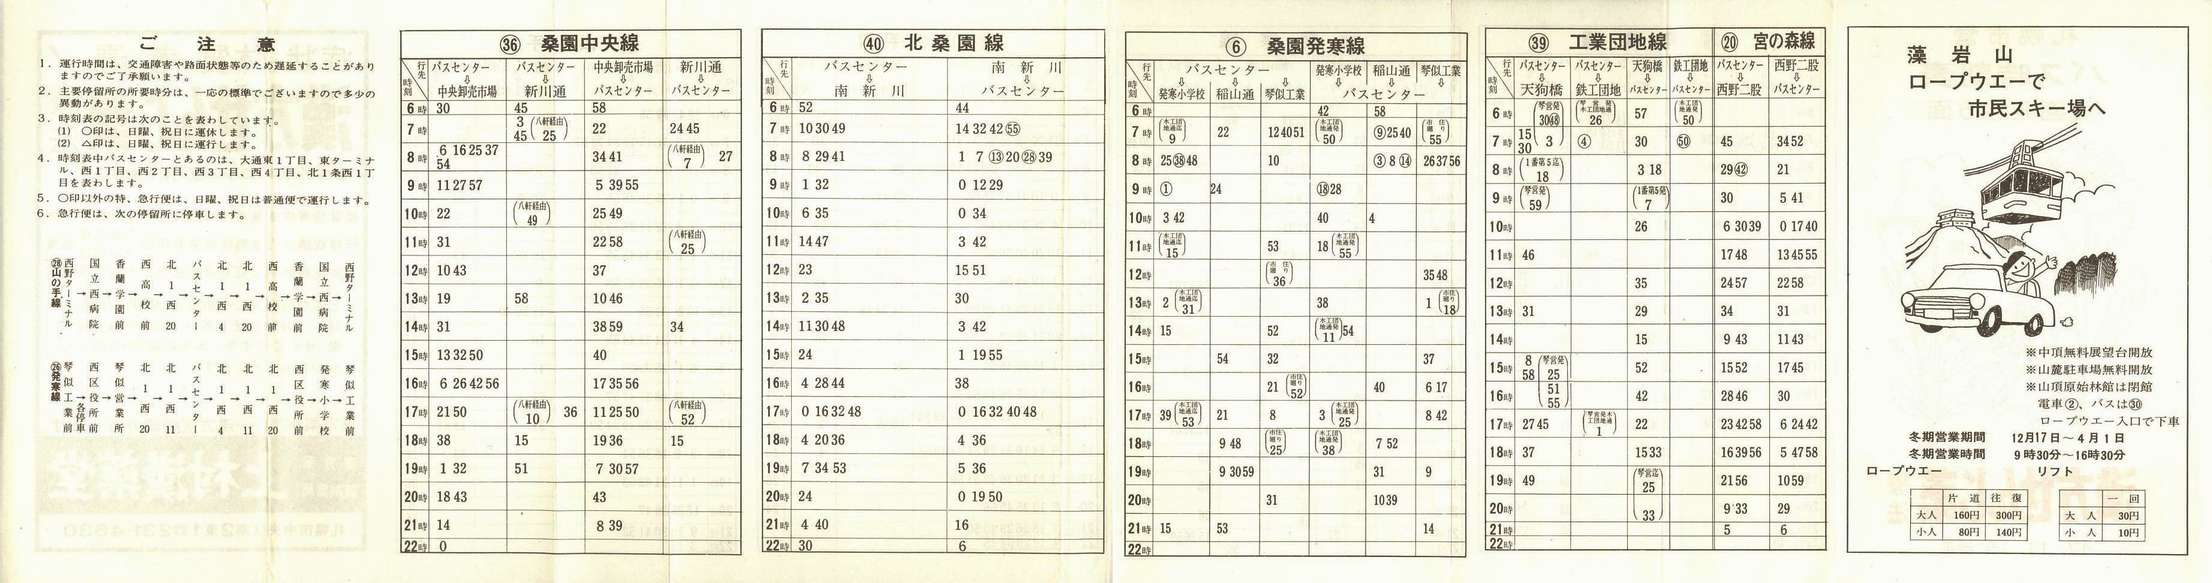 ご注意
1．運行時間は、交通障害や路面状態等のため遅延することがあり
ますのでご了承願います。
2．主要停留所の所要時分は、一応の標準でございますので多少の
異動があります。
3．時刻表の記号は次のことを表わしています。
(1) 〇印は、日曜、祝日に運休します。
(2) △印は、日曜、祝日に運行します。
4．時刻表中バスセンターとあるのは、大通東1丁目、東ターミナ
ル、西1丁目、西2丁目、西3丁目、西4丁目、北1条西1丁
目を表わします。
5．〇印以外の特、急行便は、日曜、祝日は普通便で運行します。
6．急行便は、次の停留所に停車します。
㉘山の手線
西野ターミナル→国立西病院→香蘭学園前→西高校前→北1西20→バスセンター→北1西4→北1西20→西高校前→香蘭学園前→国立西病院→西野ターミナル
㉖発寒線
琴似工業前→各停車→西区役所前→琴似営業所→北1西20→北1西11→バスセンター→北1西4→北1西11→北1西20→西区役所前→発寒小学校→琴似工業前
㊱ 桑園中央線
時刻 行先 バスセンター⇩中央卸売市場 バスセンター⇩新川通 中央卸売市場⇩バスセンター 新川通⇩バスセンター
6時 30 45 58
7時 3 45 (八軒経由 25) 22 24 45
8時 6 16 25 37 54 34 41 (八軒経由 7) 27
9時 11 27 57 5 39 55
10時 22 (八軒経由 49) 25 49
11時 31 22 58 (八軒経由 25)
12時 10 43 37
13時 19 58 10 46
14時 31 38 59 34
15時 13 32 50 40
16時 6 26 42 56 17 35 56
17時 21 50 (八軒経由 10) 36 11 25 50 (八軒経由 52)
18時 38 15 19 36 15
19時 1 32 51 7 30 57
20時 18 43 43
21時 14 8 39
22時 0
㊵ 北桑園線
時刻 行先 バスセンター⇩南新川 南新川⇩バスセンター
6時 52 44
7時 10 30 49 14 32 42 55
8時 8 29 41 1 7 ⑬ 20 ㉘ 39
9時 1 32 0 12 29
10時 6 35 0 34
11時 14 47 3 42
12時 23 15 51
13時 2 35 30
14時 11 30 48 3 42
15時 24 1 19 55
16時 4 28 44 38
17時 0 16 32 48 0 16 32 40 48
18時 4 20 36 4 36
19時 7 34 53 5 36
20時 24 0 19 50
21時 4 40 16
22時 30 6
⑥ 桑園発寒線
時刻 行先 バスセンター⇩発寒小学校 稲山通 琴似工業 発寒小学校 稲山通 琴似工業⇩バスセンター
6時 42 58
7時 (木工団地通迄 9) 22 12 40 51 (木工団地通発 50) ⑨ 25 40 (市住廻り 55)
8時 25 ㊳ 48 10 ③ 8 ⑭ 26 37 56
9時 ① 24 ⑱ 28
10時 3 42 40 4
11時 (木工団地通迄 15) 53 18 (木工団地通発 55)
12時 (市住廻り 36) 35 48
13時 2 (木工団地通迄 31) 38 1 (市住廻り 18)
14時 15 52 (木工団地通発 11) 54
15時 54 32 37
16時 21 (市住廻り 52) 40 6 17
17時 39 (木工団地通迄 53) 21 8 3 (木工団地通発 25) 8 42
18時 9 48 (市住廻り 25) (木工団地通発 38) 7 52
19時 9 30 59 31 9
20時 31 10 39
21時 15 53 14
22時
㊴ 工業団地線
時刻 行先 バスセンター⇩天狗橋 バスセンター⇩鉄工団地 天狗橋⇩バスセンター 鉄工団地⇩バスセンター
⑳ 宮の森線
バスセンター⇩西野二股 西野二股⇩バスセンター
6時 (琴営発 30 ㊽) (琴営発木工団地通 26) 57 (木工団地通 50)
7時 15 30 (3) ④ 30 ㊿ 45 34 52
8時 (1番第5迄 18) 3 18 29 ㊷ 21
9時 (琴営発 59) (1番第5発 7) 30 5 41
10時 26 6 30 39 0 17 40
11時 46 17 48 13 45 55
12時 35 24 57 22 58
13時 31 29 34 31
14時 15 9 43 11 43
15時 8 58 (琴営発 25) 52 15 52 17 45
16時 (51 55) 42 28 46 30
17時 27 45 (琴営発木工団地通 1) 22 23 42 58 6 24 42
18時 37 15 33 16 39 56 5 47 58
19時 49 (琴営迄 25) 21 56 10 59
20時 (33) 9 33 29
21時 5 6
22時
藻岩山
ロープウエーで
市民スキー場へ
※中頂無料展望台開放
※山麓駐車場無料開放
※山頂原始林館は閉館
電車②、バスは㉚
ロープウエー入口で下車
冬期営業期間 12月17日～4月1日
冬期営業時間 9時30分～16時30分
ロープウエー リフト
片道 往復
大人 160円 300円
小人 80円 140円
一回
大人 30円
小人 10円